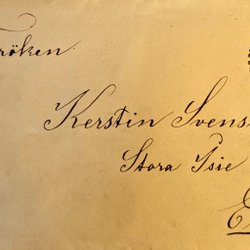 röken
Kerstin Svens
Stora Isie